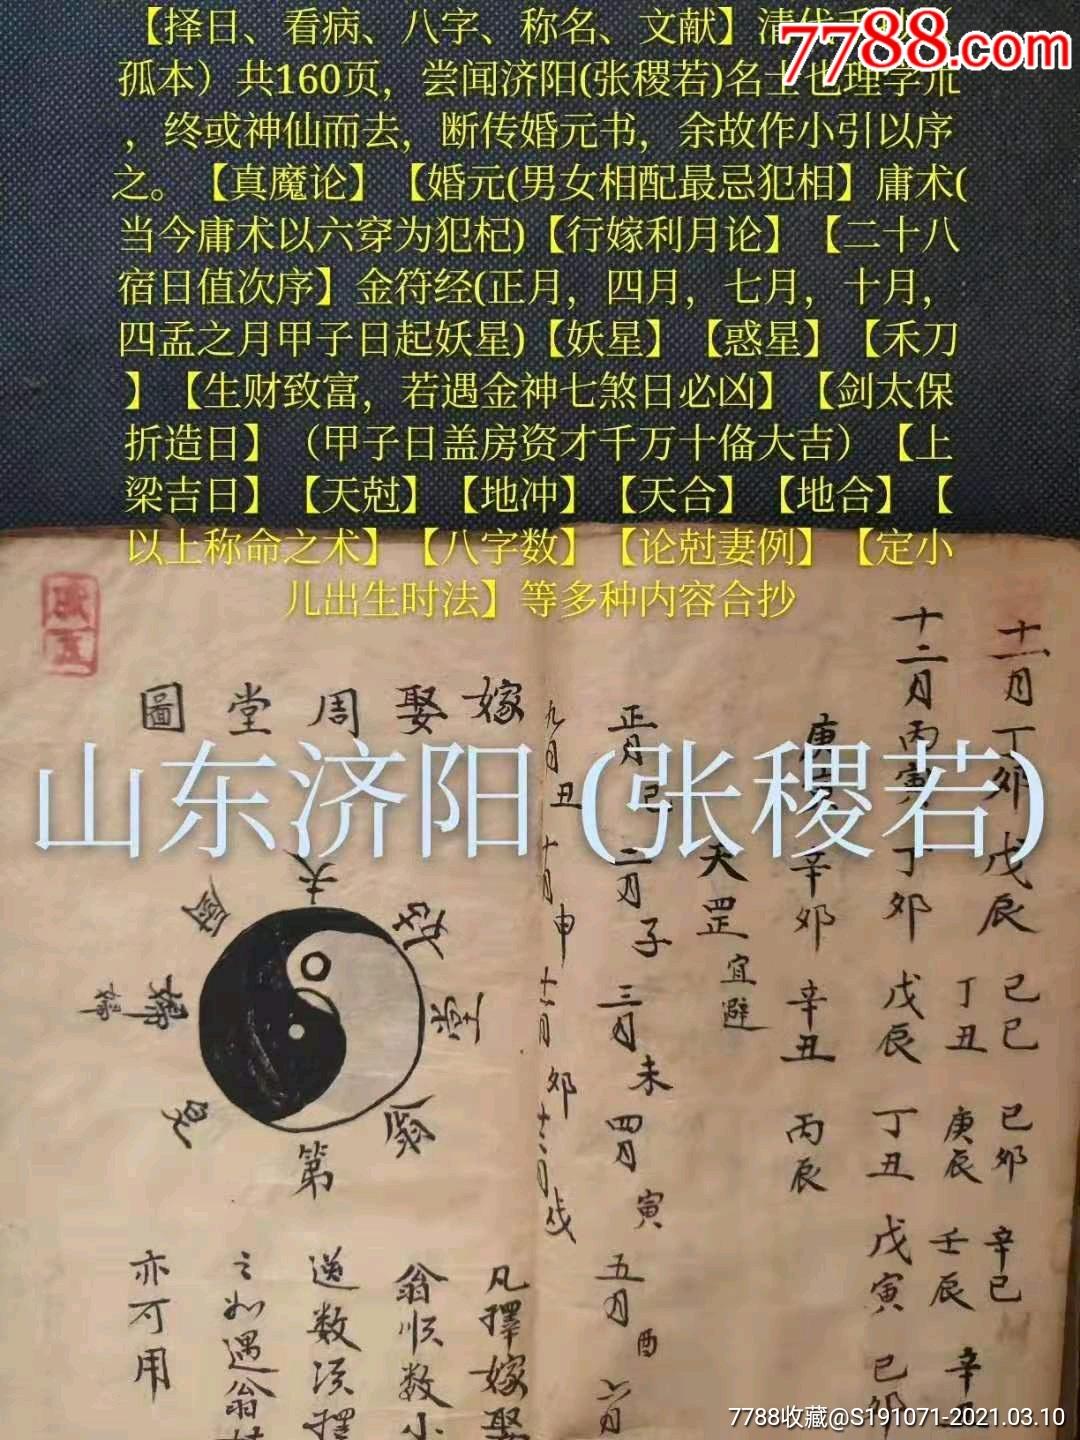 【择日、看病、八字、称名、文献】清代手抄（
孤本）共160页，尝闻济阳(张稷若)名士也理学
，终或神仙而去，断传婚元书，余故作小引以序
之。【真魔论】【婚元(男女相配最忌犯相】庸术(
当今庸术以六穿为犯杞)【行嫁利月论】【二十八
宿日值次序】金符经(正月，四月，七月，十月，
四孟之月甲子日起妖星)【妖星】【惑星】【禾刀
】【生财致富，若遇金神七煞日必凶】【剑太保
折造日】（甲子日盖房资才千万十俻大吉）【上
梁吉日】【天尅】【地冲】【天合】【地合】【
以上称命之术】【八字数】【论尅妻例】【定小
儿出生时法】等多种内容合抄
7788.com
山东济阳(张稷若)
十一月丁卯戊辰己巳己卯辛巳
丁丑庚辰壬辰辛
十二月丙寅丁卯戊辰丁丑戊寅己卯
庚辛卯辛丑丙辰
天罡宜避
正月巳二月子三月未四月寅五月酉六月
九月丑十月申十一月卯十二月戌
嫁娶周堂圖
夫
姑
堂
翁
第
竈
婦
廚
凡擇嫁娶
翁順数小
逆数須擇
之如遇翁姑
亦可用
7788收藏@S191071-2021.03.10